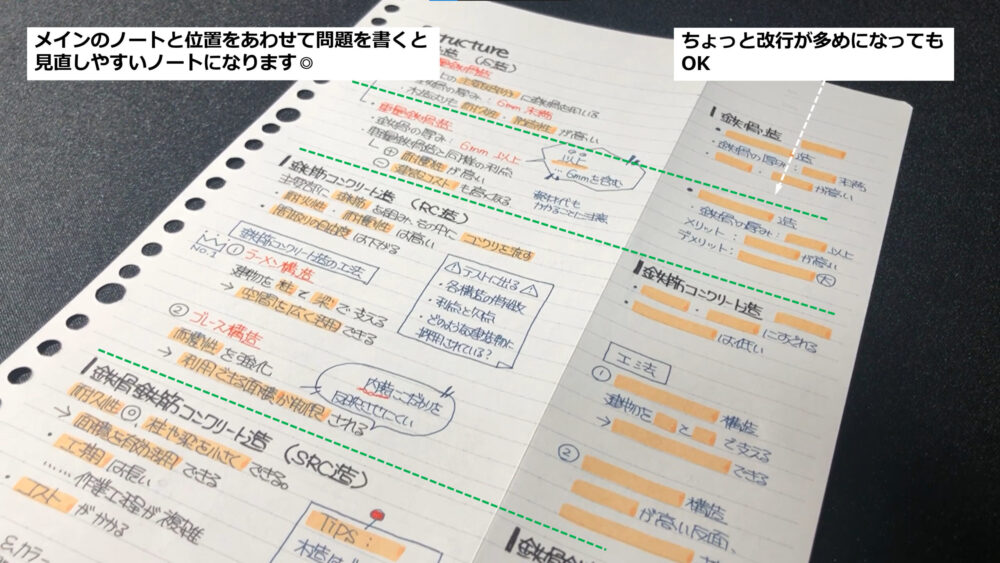 メインのノートと位置をあわせて問題を書くと
見直しやすいノートになります◎
ちょっと改行が多めになっても
OK
tructure
鉄骨の厚み：6mm未満
木造よりも耐久性・耐震性が高い
・重量鉄骨造
鉄骨の厚み：6mm以上
軽量鉄骨造と同様の利点
⊕耐震性が高い
⊖建設コストも高くなる
以上
…6mmを含む
鉄筋コンクリート造（RC造）
主要部に鉄筋を組み、その中にコンクリを流す
・耐火性・耐震性は高い
・間取りの自由度は下がる
鉄筋コンクリート造の工法
No.1
①ラーメン構造
建物を柱と梁で支える
→空間を広く活用できる
②ブレース構造
耐震性を強化
→利用できる面積が制限される
⚠テストに出る⚠
・各構造の特徴
・利点と欠点
・どのような建造物に
採用されている？
鉄骨鉄筋コンクリート造（SRC造）
耐久性◎、柱や梁を小さくできる。
→面積を有効活用できる
・工期は長い
……作業工程が複雑
・コストがかかる
TIPS：
鉄骨造
造
・鉄骨の厚み： 未満
が高い
造
・鉄骨の厚み： 以上
メリット： が高い
デメリット： 大
鉄筋コンクリート造
にすぐれる
は低い
工法
① 構造
建物を と で支える
できる
② 構造
が高い反面、